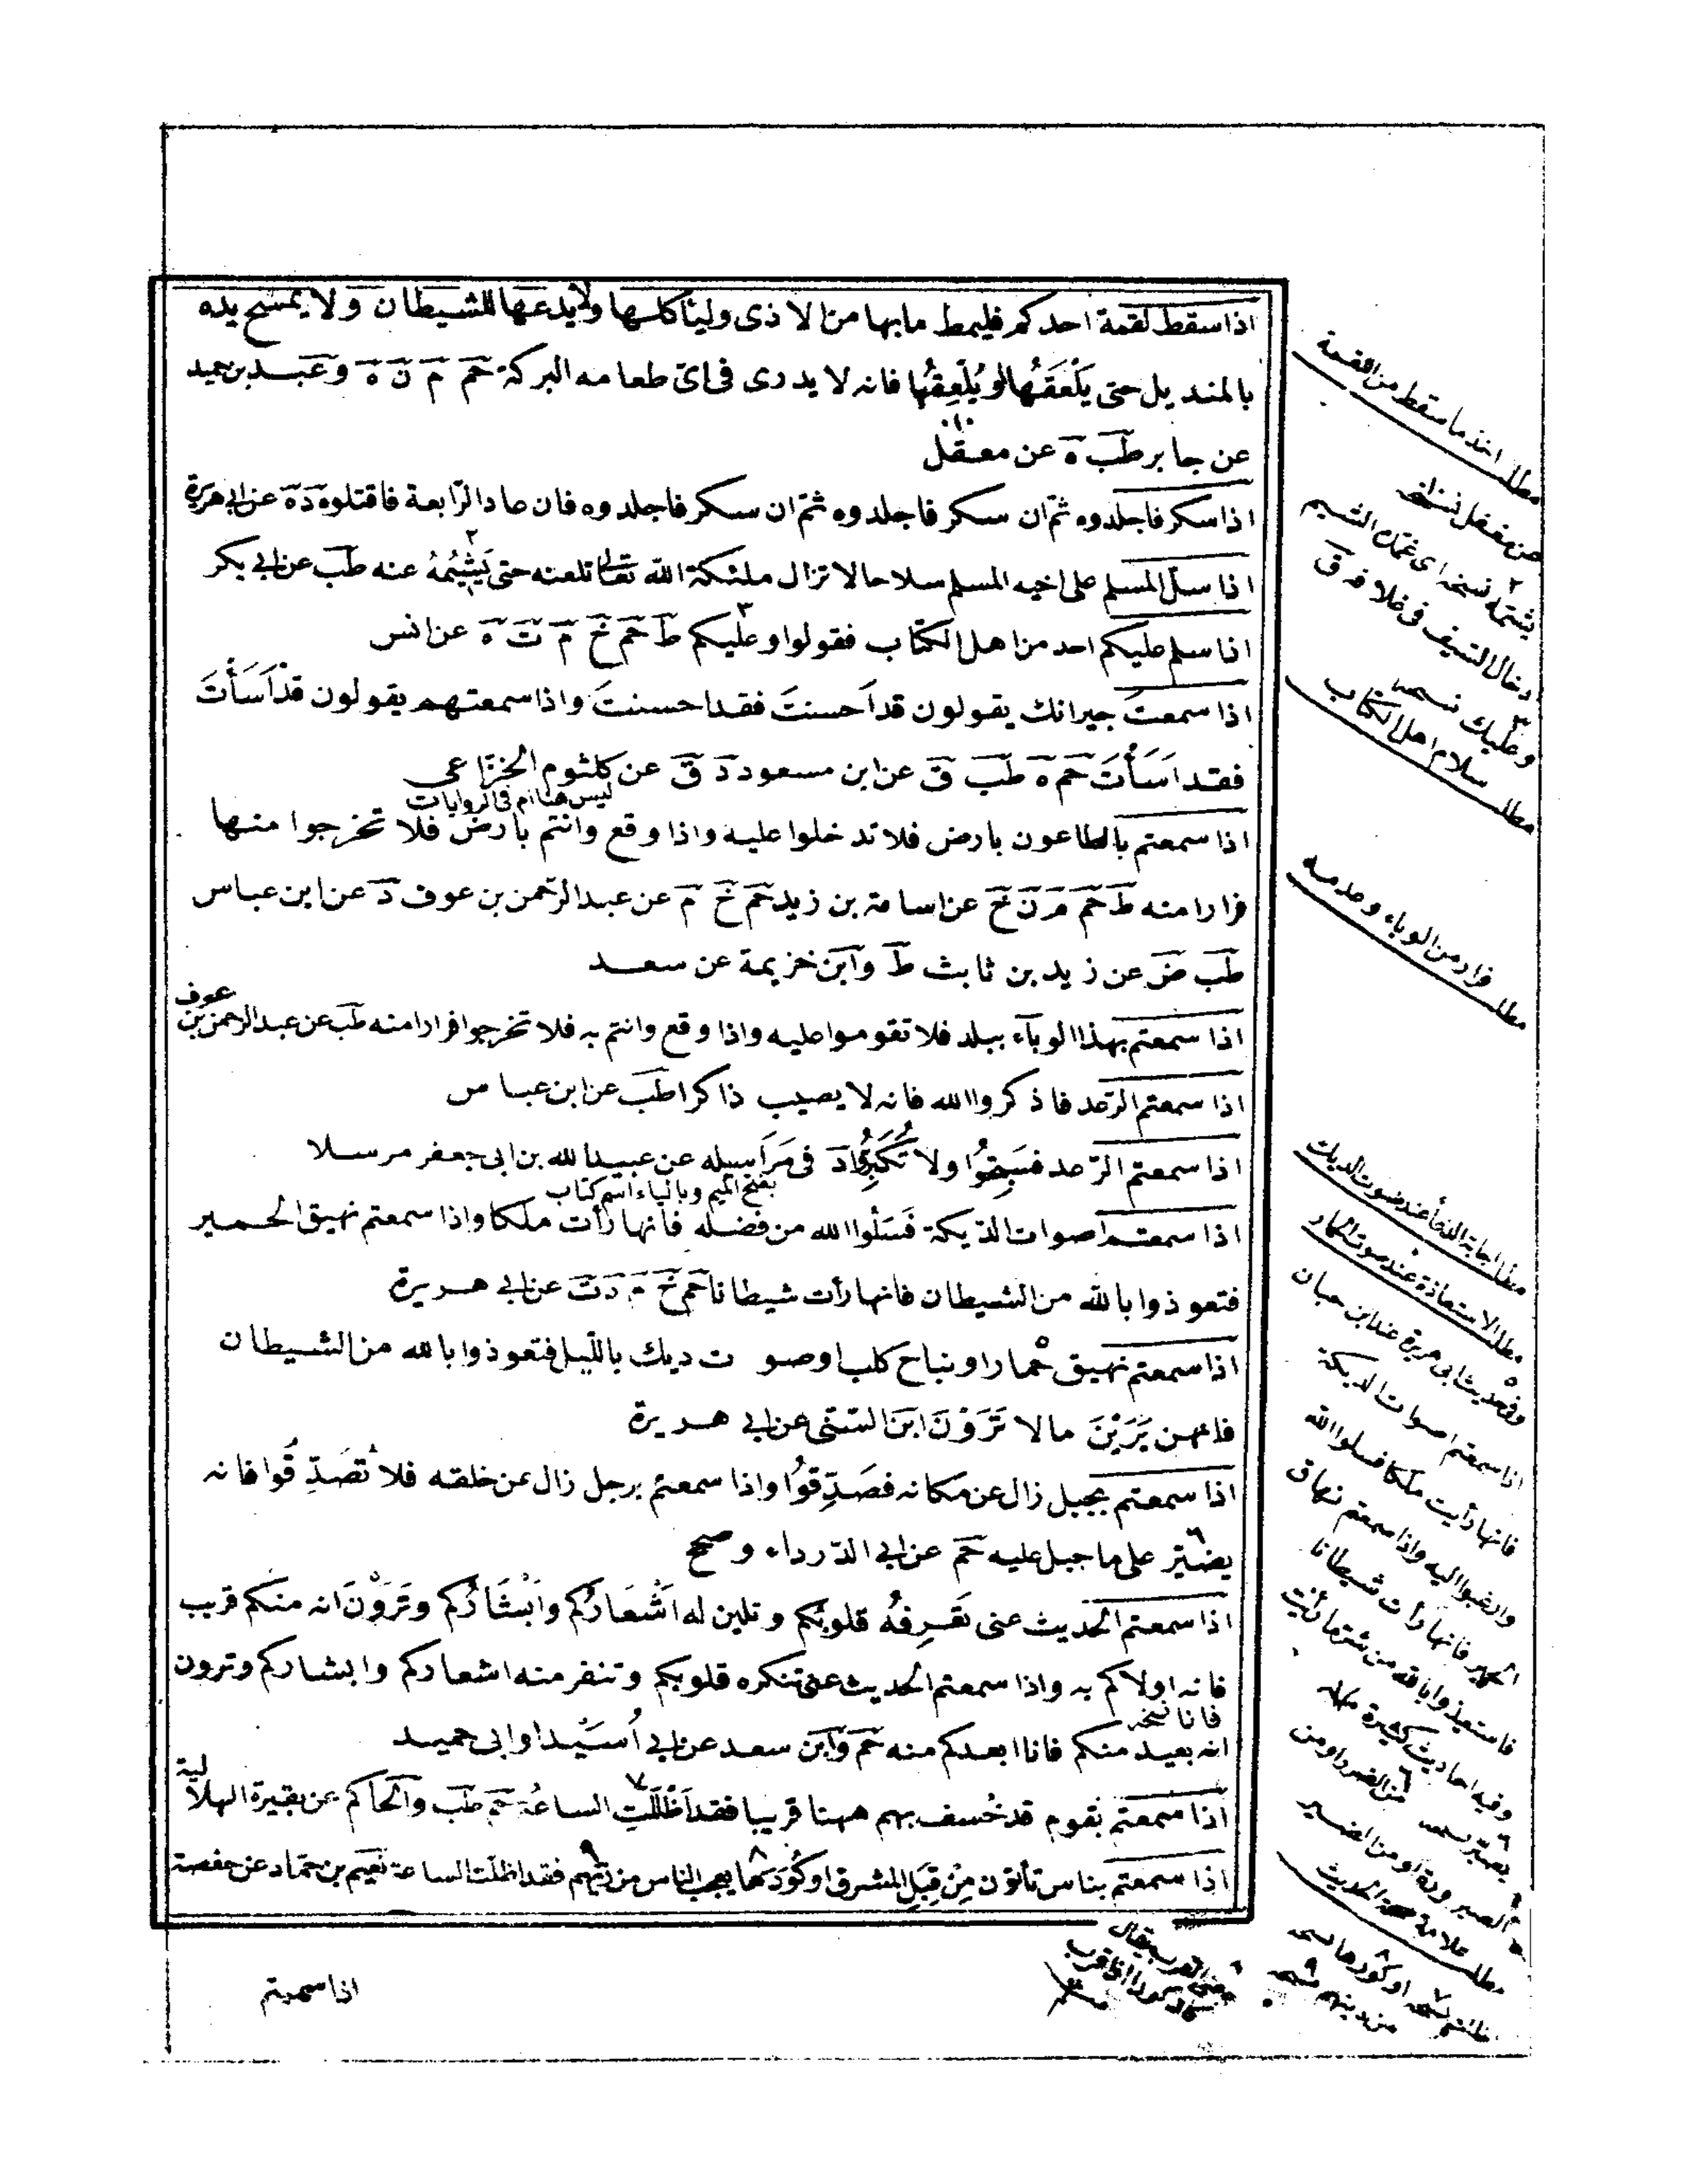 اذا سقط لقمة احدكم فليمط ما بها من الاذى وليأكلها ولايدعها للشيطان ولا يمسح يده
بالمنديل حتى يَلْعَقَها او يُلْعِقَها فانه لا يدرى فى اىّ طعامه البركة حم م ن ه وعبد بن حميد
عن جابر طب ه عن معقل
اذا سكر فاجلدوه ثم ان سكر فاجلدوه ثم ان سكر فاجلدوه فان عاد الرّابعة فاقتلوه د ه عن ابى هريرة
اذا سلّ المسلم على اخيه المسلم سلاحا لا تزال ملئكة الله تعالى تلعنه حتى يَشِيْمَهُ عنه طب عن ابى بكر
اذا سلم عليكم احد من اهل الكتاب فقولوا وعليكم ط حم خ م ت ه عن انس
اذا سمعتَ جيرانك يقولون قد اَحسنتَ فقد احسنتَ واذا سمعتهم يقولون قد اَسَأْتَ
فقد اَسَأْتَ حم ه طب ق عن ابن مسعود د ق عن كلثوم الخزاعى
اذا سمعتم بالطاعون بارض فلا تدخلوا عليه واذا وقع وانتم بارض فلا تخرجوا منها
فرارا منه ط حم م ن خ عن اسامة بن زيد حم خ م عن عبد الرّحمن بن عوف د عن ابن عباس
طب ض عن زيد بن ثابث ط وابن خزيمة عن سعد
اذا سمعتم بهذا الوبآء ببلد فلا تقوموا عليه واذا وقع وانتم به فلا تخرجوا فرارا منه طب عن عبد الرحمن بن عوف
اذا سمعتم الرّعد فاذكروا الله فانه لا يصيب ذاكرا طب عن ابن عباس
اذا سمعتم الرّعد فسَبِّحُوا ولا تُكَبِّرُوا د فى مَرَاسيله عن عبيد الله بن ابى جعفر مرسلا
بفتح الميم وبالياء اسم كتاب
اذا سمعتم اصوات الدّيكة فَسَلُوا الله من فضله فانها رأت ملكا واذا سمعتم نهيق الحمير
فتعوذوا بالله من الشيطان فانها رأت شيطانا حم خ م د ت عن ابى هريرة
اذا سمعتم نهيق حمار او نباح كلب او صوت ديك باللّيل فتعوذوا بالله من الشيطان
فانهن يَرَيْنَ ما لا تَرَوْنَ ابن السّنى عن ابى هريرة
اذا سمعتم بجبل زال عن مكانه فصَدِّقُوا واذا سمعتم برجل زال عن خلقه فلا تُصَدِّقُوا فانه
يصير على ما جبل عليه حم عن ابى الدّرداء وصح
اذا سمعتم الحديث عنى تَعْرِفُهُ قلوبكم وتلين له اَشْعَارُكم وَاَبْشَارُكم وتَرَوْنَ انه منكم قريب
فانا اولاكم به واذا سمعتم الحديث عنى تنكره قلوبكم وتنفر منه اشعاركم وابشاركم وترون
فانا نسخه
انه بعيد منكم فانا ابعدكم منه حم وابن سعد عن ابى اُسَيْد او ابى حميد
اذا سمعتم بقوم قد خُسف بهم ههنا قريبا فقد اَظَلَّتِ الساعةُ حم طب والحاكم عن بقيرة الهلالية
اذا سمعتم بناس تأتون مِنْ قِبَلِ المشرق او كُورَتها يعجب الناس من زيّهم فقد اظلت الساعة نعيم بن حماد عن حفصة
اذا سمعتم
مطلب اخذ ما سقط من اللقمة
عن مغفل نسخه
دخال السيف فى غلافه ق
وعليك نسخه
مطلب سلام اهل الكتاب
مطلب فرار من الوباء وعدمه
مطلب اجابة الدعأ عند صوت الديك
مطلب الاستعاذة عند صوت الحمار
وفى حديث ابى هريرة عند ابن حبان
اذا سمعتم اصوات الديكة
فانها رأيت ملكا فسلوا الله
وارغبوا اليه واذا سمعتم نهاق
الحمير فانها رأت شيطانا
فاستعيذوا بالله من شر ما رأيت
وفيه احاديث كثيرة
مطلب علامة صحة الحديث
او كورها نسخه